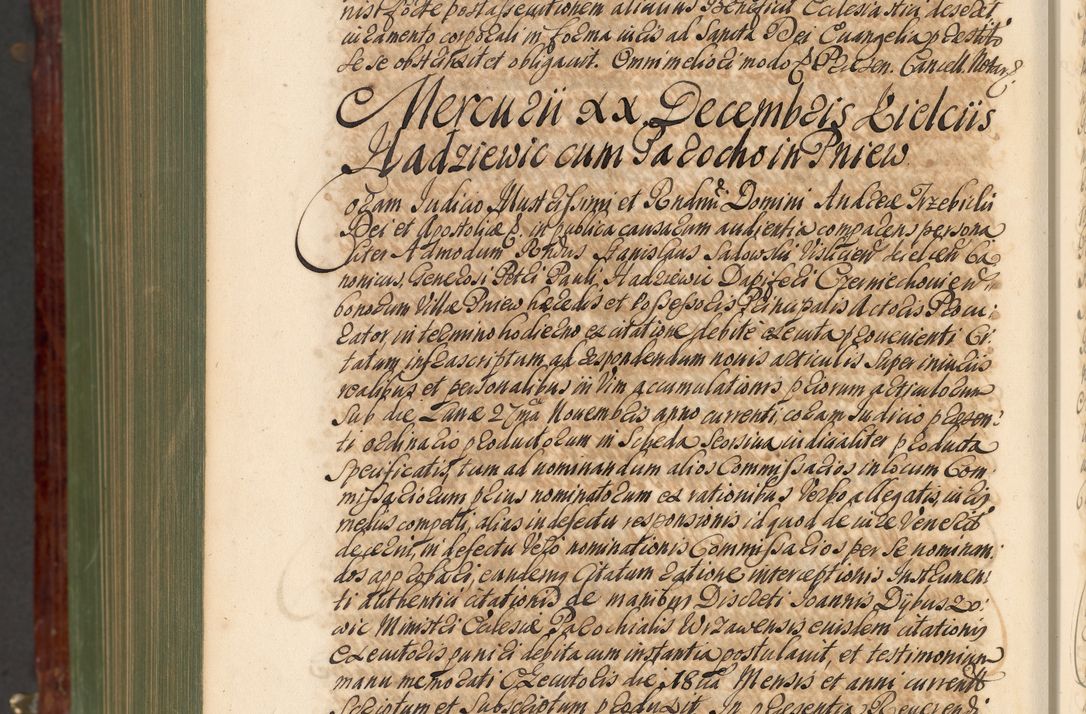 nist forte post assecutionem alicuius Beneficii Ecclesiastici deseret,
iuramento corporali in forma iuris ad Sancta Dei Evangelia præstito
se se obstrinxit et obligavit. Omni meliori modo Præsen. Cancell. Notar
Mercurii XX Decembris Kielciis
Hadziewic cum Parocho in Pniew
Coram Judicio Illustrissimi et Rndmi Domini Andreæ Trzebicki
Dei et Apostolicæ in publica causarum audientia comparens persona
liter Admodum Rndus Stanislaus Sadowski Vislicien Kielcen Ca
nonicus, Generosi Petri Pauli Hadziewic Dapiferi Czerniechovien
bonorum Villæ Pniew hæredis et Possessoris Principalis Actoris Procu
rator, in termino hodierno ex citatione debite executa proveniente Ci
tatum infrascriptum ad respondendum novis articulis super iniuriis
realibus et personalibus in Vim accumulationis priorum articulorum
Sub die Lunæ 27ma Novembris anno currenti, coram Judicio præsen
ti ordinario productorum in Scheda seorsiva iudicialiter producta
specificatis, tum ad nominandum alios Commissarios in locum Com
missariorum prius nominatorum ex rationibus Verbo allegatis, iuris
mediis compelli, alias in defectu responsionis id quod de iure Venerit
decerni, in defectu Vero nominationis Commissarios per se nominan
dos approbari, eundemq Citatum ratione interceptionis Instrumen
ti authentici citationis de manibus Discreti Joannis Dybuszo
wic Ministri Ecclesiæ Parochialis Wizawensis eiusdem citationis
Executoris puniri debita cum instantia postulavit, et testimonium
manu memorati Executoris die 18va Mensis et anni currentis
Scriptum et Subscriptum produxit. In præsentia Reverendi